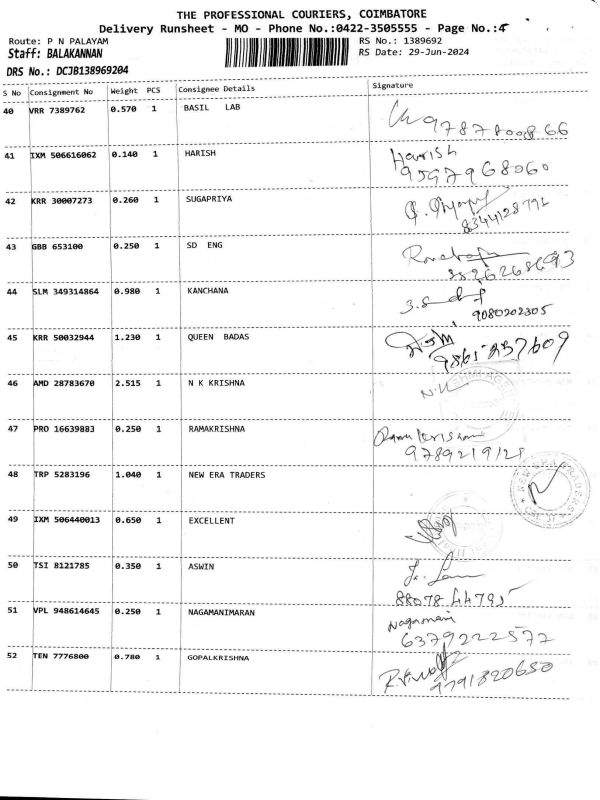 THE PROFESSIONAL COURIERS, COIMBATORE
Delivery Runsheet - MO - Phone No.:0422-3505555 - Page No.:4
Route: P N PALAYAM
RS No.: 1389692
Staff: BALAKANNAN
RS Date: 29-Jun-2024
DRS No.: DCJB138969204
S No Consignment No Weight PCS Consignee Details Signature
40 VRR 7389762 0.570 1 BASIL LAB
9787800866
41 IXM 506616062 0.140 1 HARISH Harish
9597968060
42 KRR 30007273 0.260 1 SUGAPRIYA
8344128792
43 GBB 653100 0.250 1 SD ENG
44 SLM 349314864 0.980 1 KANCHANA
9080202305
45 KRR 50032944 1.230 1 QUEEN BADAS
9865237609
46 AMD 28783670 2.515 1 N K KRISHNA N.K
47 PRO 16639883 0.250 1 RAMAKRISHNA Ramakrishna
9789219128
48 TRP 5283196 1.040 1 NEW ERA TRADERS
NEW ERA TRADERS
49 IXM 506440013 0.650 1 EXCELLENT
50 TSI 8121785 0.350 1 ASWIN
88078 44795
51 VPL 948614645 0.250 1 NAGAMANIMARAN Nagamani
6379222572
52 TEN 7776800 0.780 1 GOPALKRISHNA
9791820650